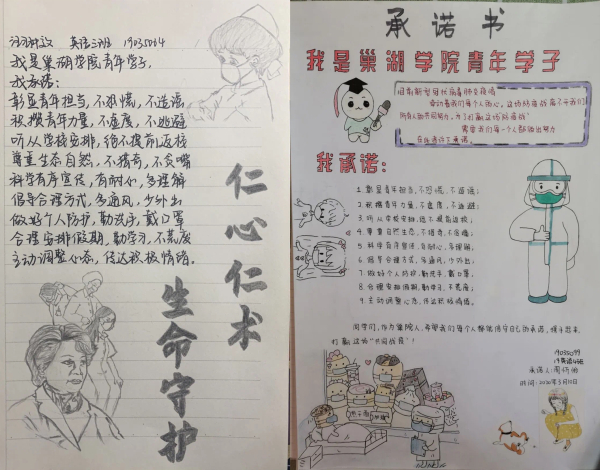 英语三班 19035064
我是巢湖学院青年学子,
我承诺:
彰显青年担当,不恐慌,不造谣
积攒青年力量,不虚度,不逃避
听从学校安排,绝不提前返校
尊重生态自然,不猎奇,不贪嘴
科学有序宣传,有耐心,多理解
倡导合理方式,多通风,少外出
做好个人防护,勤洗手,戴口罩
合理安排假期,勤学习,不荒废
主动调整心态,传达积极情绪。
仁心仁术
生命守护
承诺书
我是巢湖学院青年学子
目前新型冠状病毒肺炎疫情
牵动着我们每个人的心,这场防疫战离不开我们
所有人的共同努力,为了打赢这场防疫战
需要我们每一个人都做出努力
在此我作下承诺。
我承诺:
1. 彰显青年担当,不恐慌,不造谣;
2. 积攒青年力量,不虚度,不逃避;
3. 听从学校安排,绝不提前返校;
4. 尊重生态自然,不猎奇,不贪嘴;
5. 科学有序宣传,有耐心,多理解;
6. 倡导合理方式,多通风,少外出;
7. 做好个人防护,勤洗手,戴口罩;
8. 合理安排假期,勤学习,不荒废;
9. 主动调整心态,传达积极情绪。
同学们,作为巢院人,希望我们每个人都能信守自己的承诺,携手起来,
打赢这场“共同战役”!
19035099
19英语4班
承诺人:周
时间:2020年3月10日
热干面